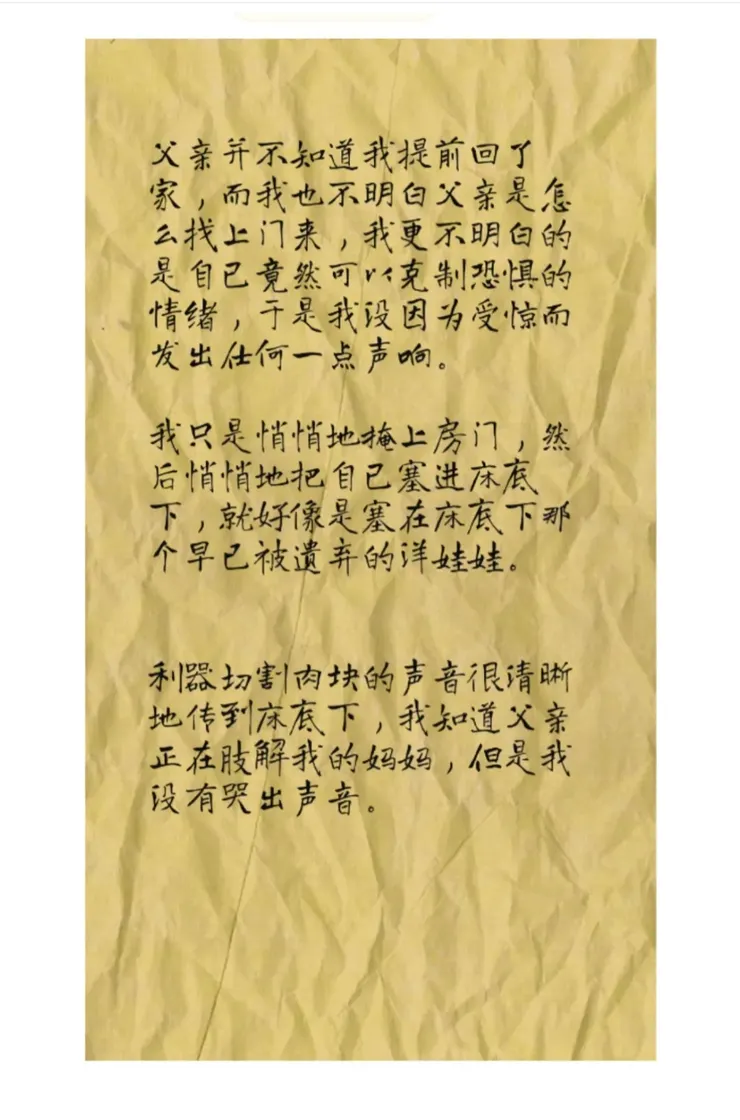 父亲并不知道我提前回了
家，而我也不明白父亲是怎
么找上门来，我更不明白的
是自己竟然可以克制恐惧的
情绪，于是我没因为受惊而
发出任何一点声响。
我只是悄悄地掩上房门，然
后悄悄地把自己塞进床底
下，就好像是塞在床底下那
个早已被遗弃的洋娃娃。
利器切割肉块的声音很清晰
地传到床底下，我知道父亲
正在肢解我的妈妈，但是我
没有哭出声音。